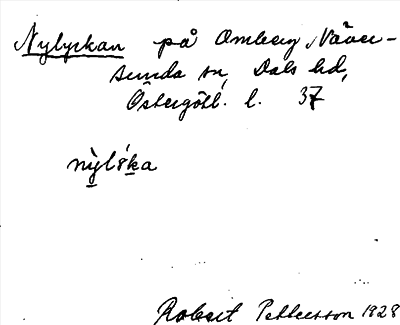 Nylyckan på Omberg, Väver-
sunda sn, Dals hd,
Östergötl. l. 37
nỳlẙ́ka
Robert Pettersson 1928